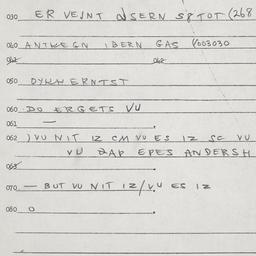 030 ER VEINT UNSERN SPTOT (268
040 ANTKEGN IBERN GAS 1/003030
041 042
050 ERNTST
060 DO ERGETS VU
061 —
062 ) VU NIT IZ CM VU ES IZ SC VU
VU ZAP EPES ANDERSH
063
070 — BUT VU NIT IZ/VU ES IZ
080 0